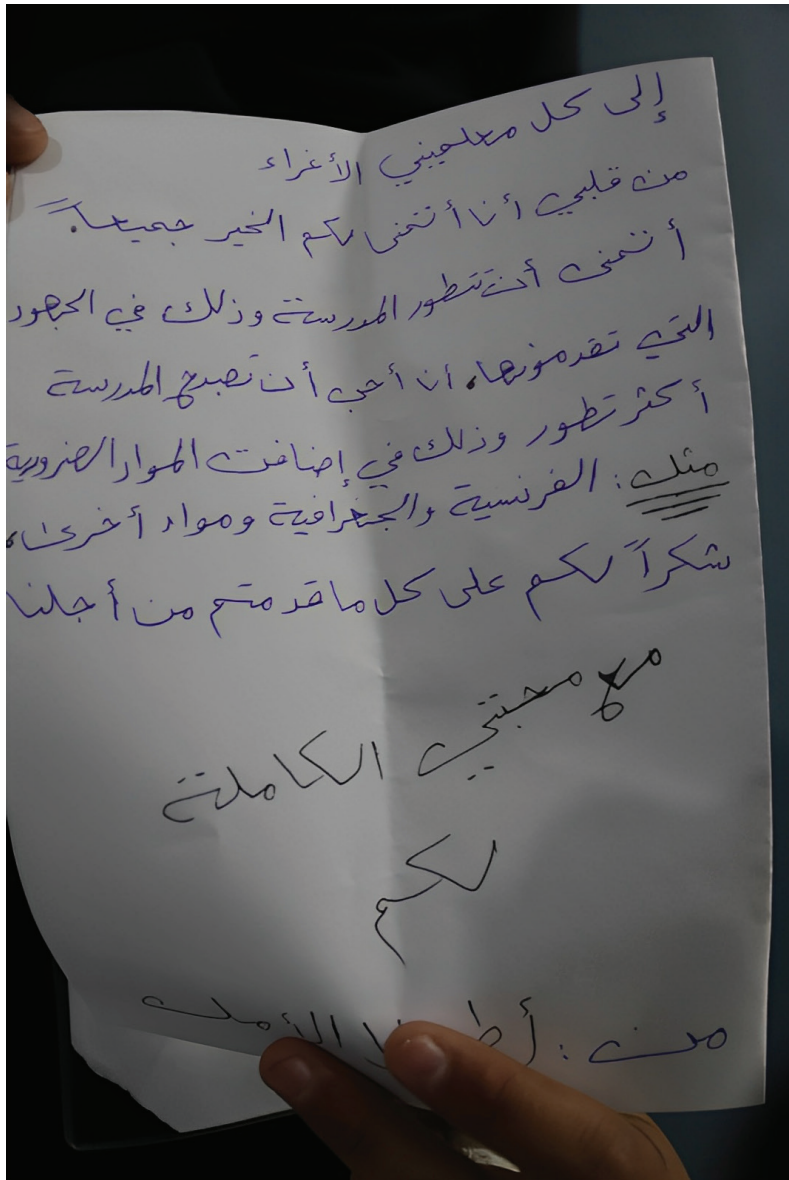 إلى كل معلميني الأغراء
من قلبي أنا أتمنى لكم الخير جميعاً.
أتمنى أن تتطور المدرسة وذلك في الجهود
التي تقدمونها، أنا أحب أن تصبح المدرسة
أكثر تطور وذلك في إضافت المواد الضرورية
مثل: الفرنسية والجغرافية ومواد أخرى،
شكراً لكم على كل ما قدمتم من أجلنا
مع محبتي الكاملة
لكم
من: الأمل